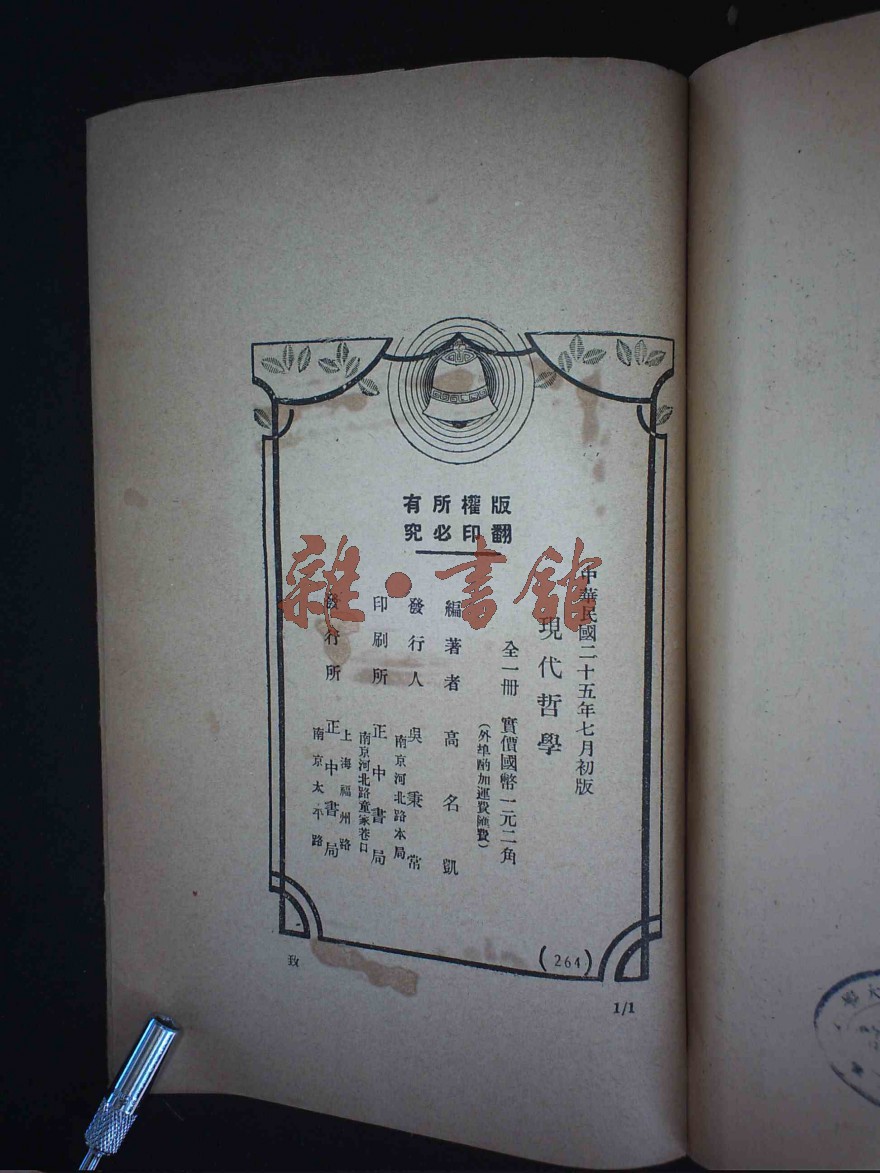 版權所有
翻印必究
中華民國二十五年七月初版
現代哲學
全一冊 實價國幣一元二角
(外埠酌加運費匯費)
編著者 高名凱
發行人 吳秉常
南京河北路本局
印刷所 正中書局
南京河北路童家巷口
發行所 正中書局
上海福州路
南京太平路
(264)
致
1/1
雜·書館